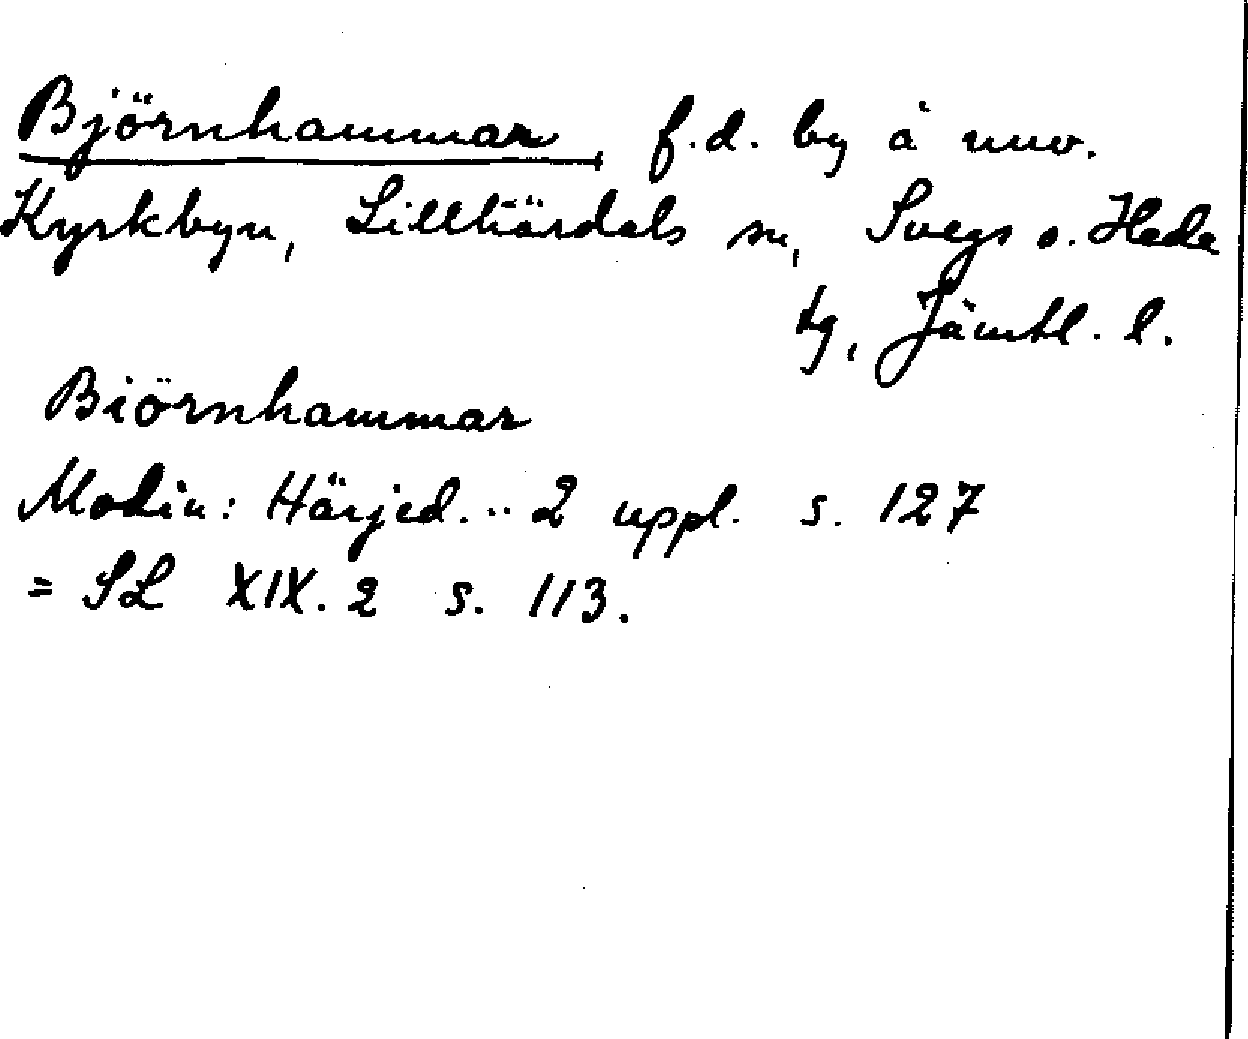 Björnhammar, f.d. by å nuv.
Kyrkbyn, Lillhärdals sn, Svegs o. Hede
tg, Jämtl. l.
Biörnhammar
Modin: Härjed. .. 2 uppl. s. 127
= SL XIX. 2 s. 113.